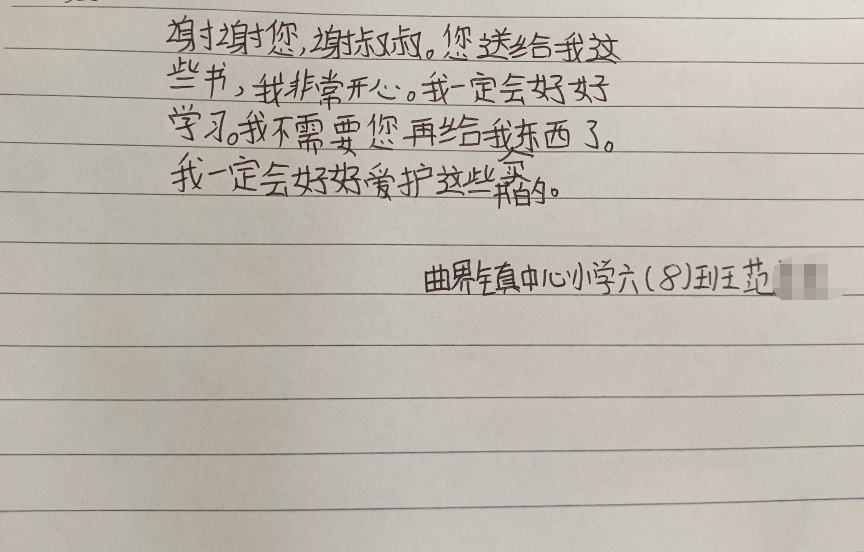 谢谢您,谢叔叔。您送给我这
些书,我非常开心。我一定会好好
学习。我不需要您再给我东西了。
我一定会好好爱护这些书的。
曲界镇中心小学六(8)班 范